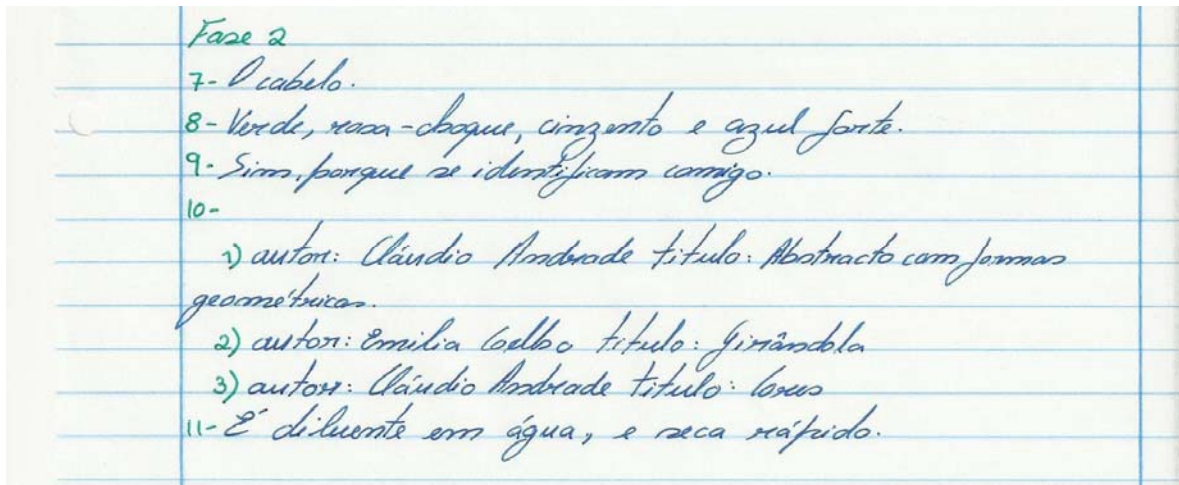 Fase 2
7- O cabelo.
8- Verde, rosa-choque, cinzento e azul forte.
9- Sim, porque se identificam comigo.
10-
1) autor: Cláudio Andrade titulo: Abstracto com formas
geométricas.
2) autor: Emilia Coelho titulo: Girândola
3) autor: Cláudio Andrade titulo:
11- É diluente em água, e seca rápido.